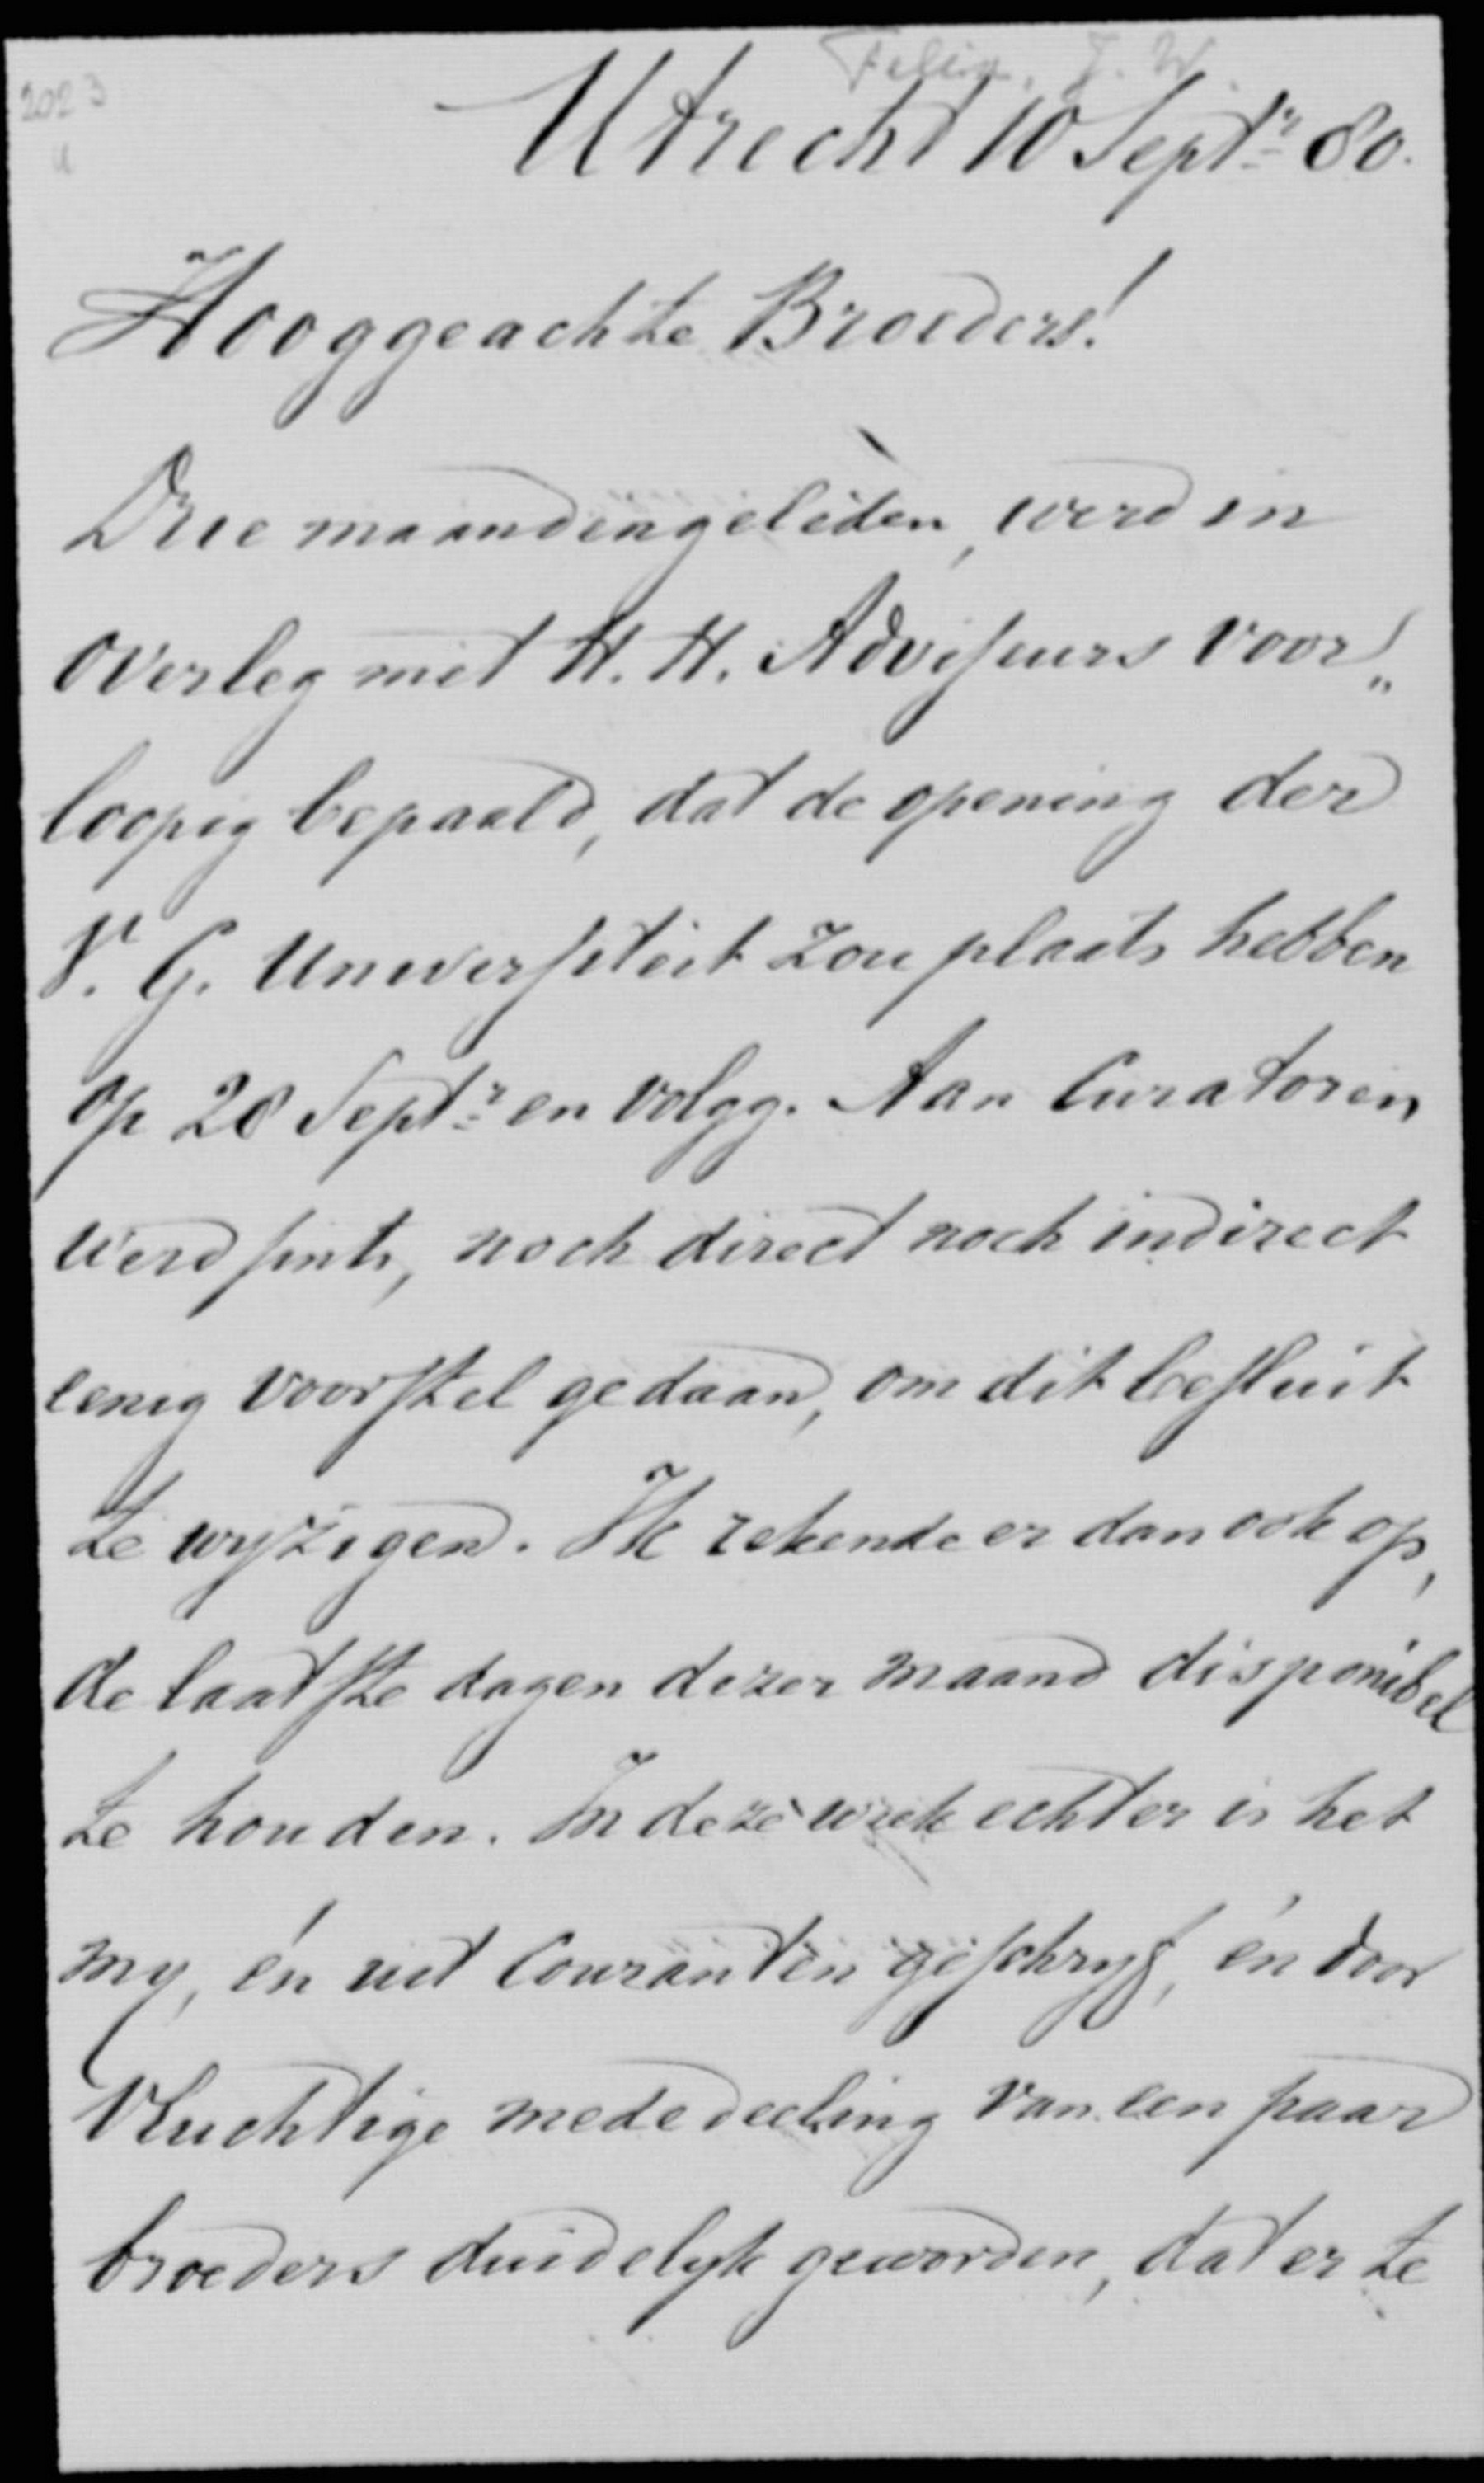 Felix, J. W.
2023
Utrecht 10 Septr 80.
Hooggeachte Broeders!
Drie maanden geleden, werd in
overleg met H. H. Adviseurs voor„
loopig bepaald, dat de opening der
V. G. Universiteit zou plaats hebben
op 28 Septr en volgg. Aan Curatoren
werd sints, noch direct noch indirect
eenig voorstel gedaan, om dit besluit
te wyzigen. Ik rekende er dan ook op,
de laatste dagen dezer maand disponibel
te houden. In deze week echter is het
my, én uit Couranten geschryf, én door
vluchtige mededeeling van een paar
broeders duidelyk geworden, dat er te